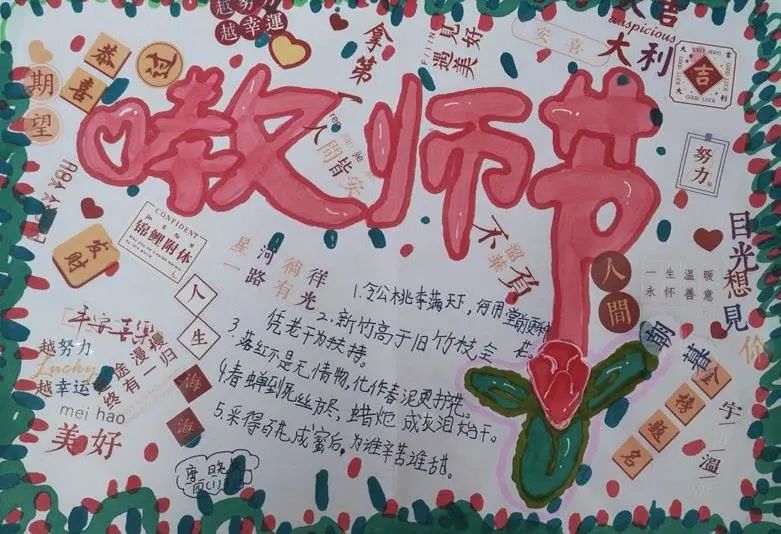 越努力
越幸運
拿第一
見好
遇美
安喜
大吉
auspicious
大利
GOOD LUCK
吉
大吉
大利
GOOD LUCK
恭喜
期望
教师节
人間皆安
努力
CONFIDENT
錦鯉附体
发财
星河
一路
徜徉
有光
不負
人間
一生温暖
永怀善意
目光想見
人生
海海
平安喜樂
越努力
Lucky
越幸運
mei hao
美好
漫漫
终有一归
金榜题名
1.令公桃李满天下,何用堂前更种花。
2.新竹高于旧竹枝全凭老干为扶持。
3.落红不是无情物,化作春泥更护花。
4.春蝉到死丝方尽,蜡炬成灰泪始干。
5.采得百花成蜜后,为谁辛苦谁甜。